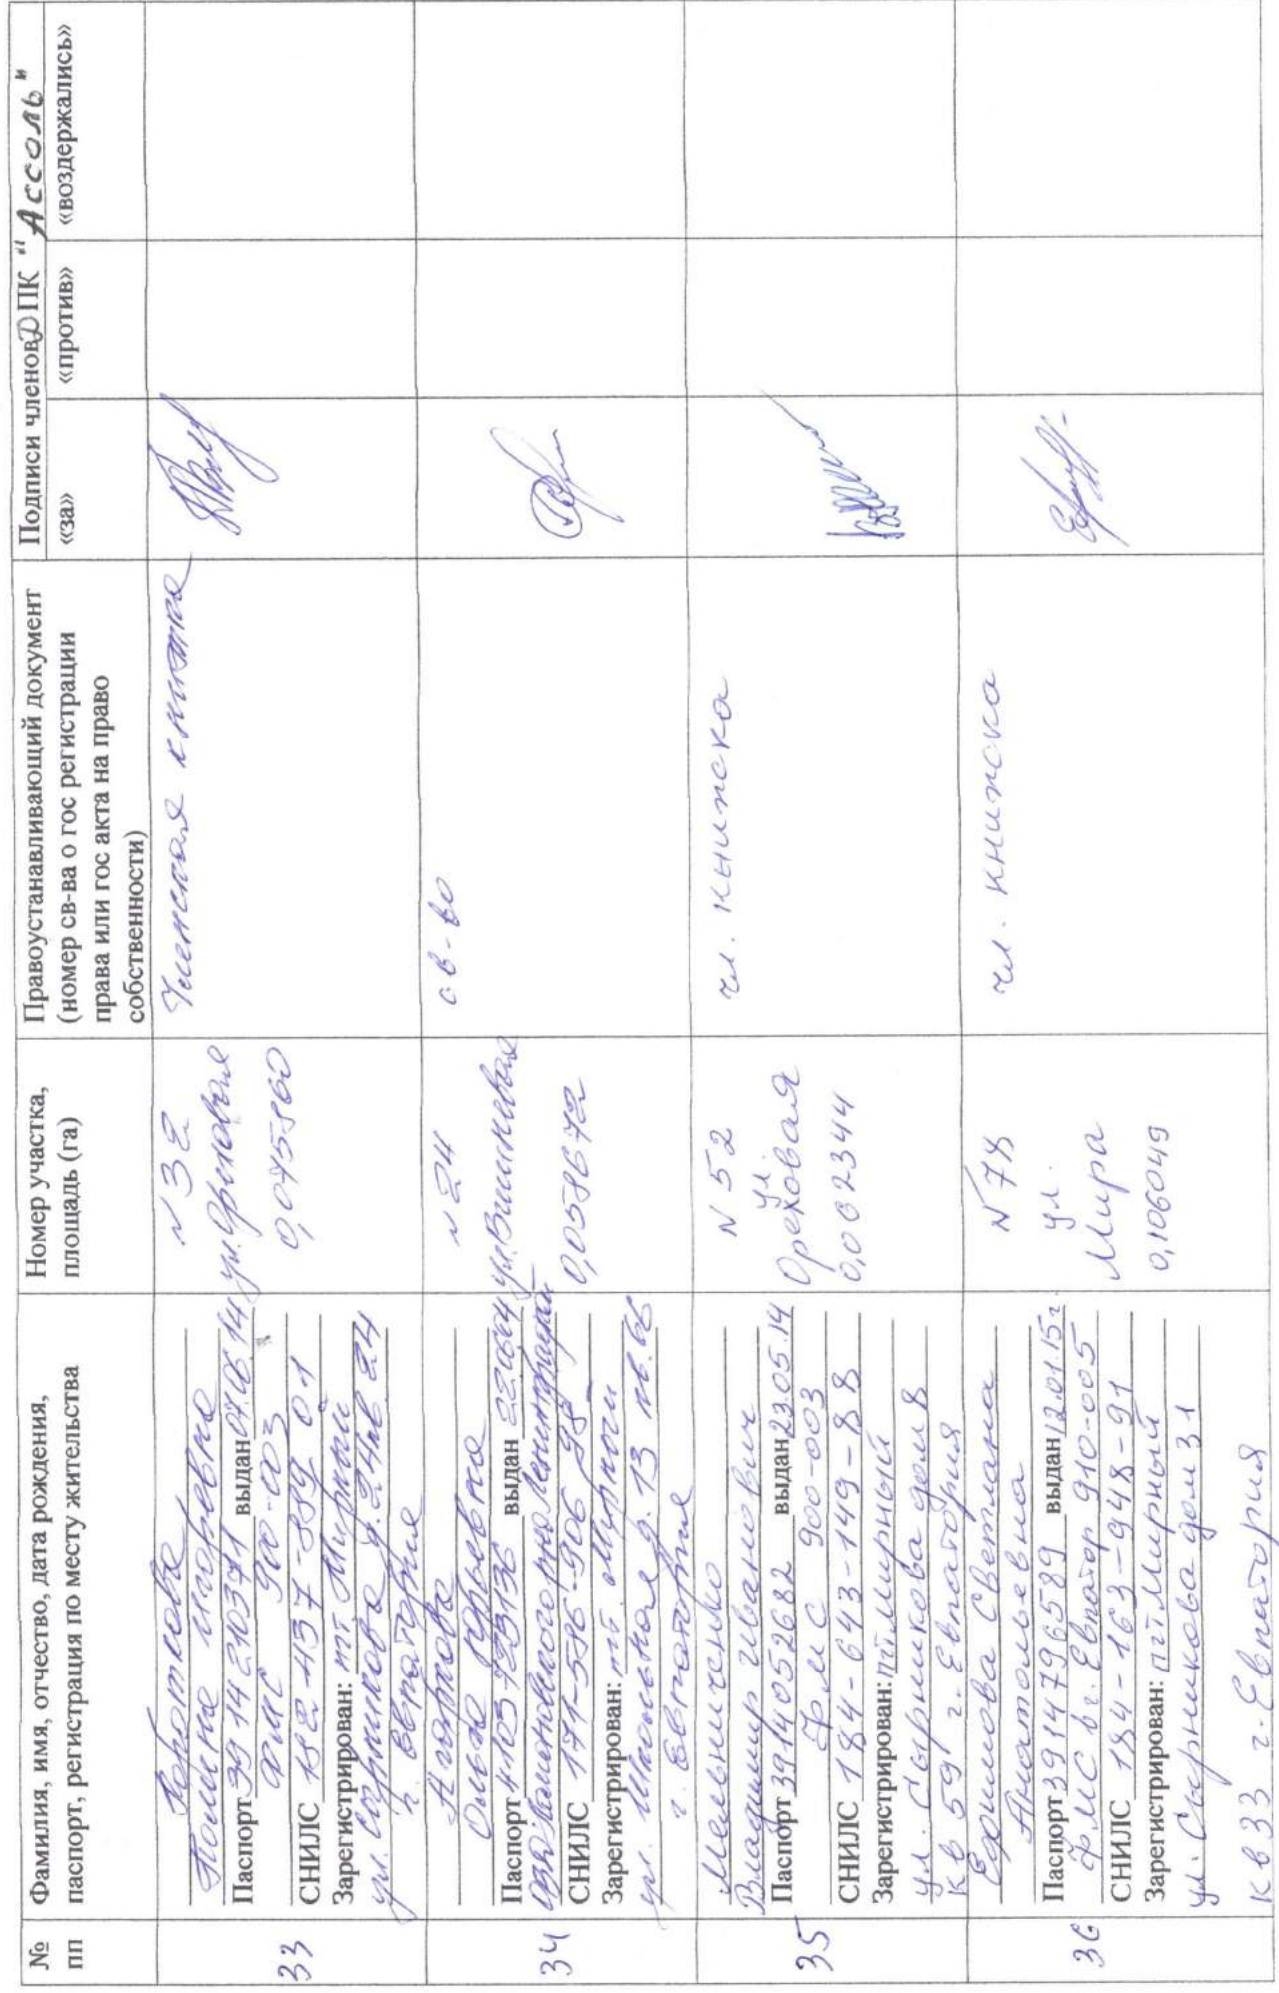 №
пп
Фамилия, имя, отчество, дата рождения,
паспорт, регистрация по месту жительства
Номер участка,
площадь (га)
Правоустанавливающий документ
(номер св-ва о гос регистрации
права или гос акта на право
собственности)
Подписи членов ДПК "Ассоль"
«за»
«против»
«воздержались»
33
Полина Игоревна
Паспорт 39 14 210371 выдан 07.06.14
ФМС 900-003
СНИЛС 182-437-889 01
Зарегистрирован: пгт Мирный
ул. Сырникова д. 24 кв 24
г. Евпатория
N 32
ул. Ореховая
Членская книжка
34
Ольга Юрьевна
Паспорт 4103 723136 выдан
СНИЛС 171-586-906 98
Зарегистрирован: пгт. Мирный
ул. Школьная д. 13 кв. 66
г. Евпатория
N 24
ул. Вишневая
0,058672
св-во
35
Мельниченко
Владимир Иванович
Паспорт 3914052682 выдан 23.05.14
ФМС 900-003
СНИЛС 184-643-149-88
Зарегистрирован: пгт Мирный
ул. Сырникова дом 8
кв 59 г. Евпатория
N 52
ул.
Ореховая
0,062344
чл. книжка
36
Светлана
Анатольевна
Паспорт 3914796589 выдан 12.01.15г.
ФМС в г. Евпатор 910-005
СНИЛС 184-163-948-91
Зарегистрирован: пгт Мирный
ул. Сырникова дом 31
кв 33 г. Евпатория
N 78
ул.
Мира
0,106049
чл. книжка